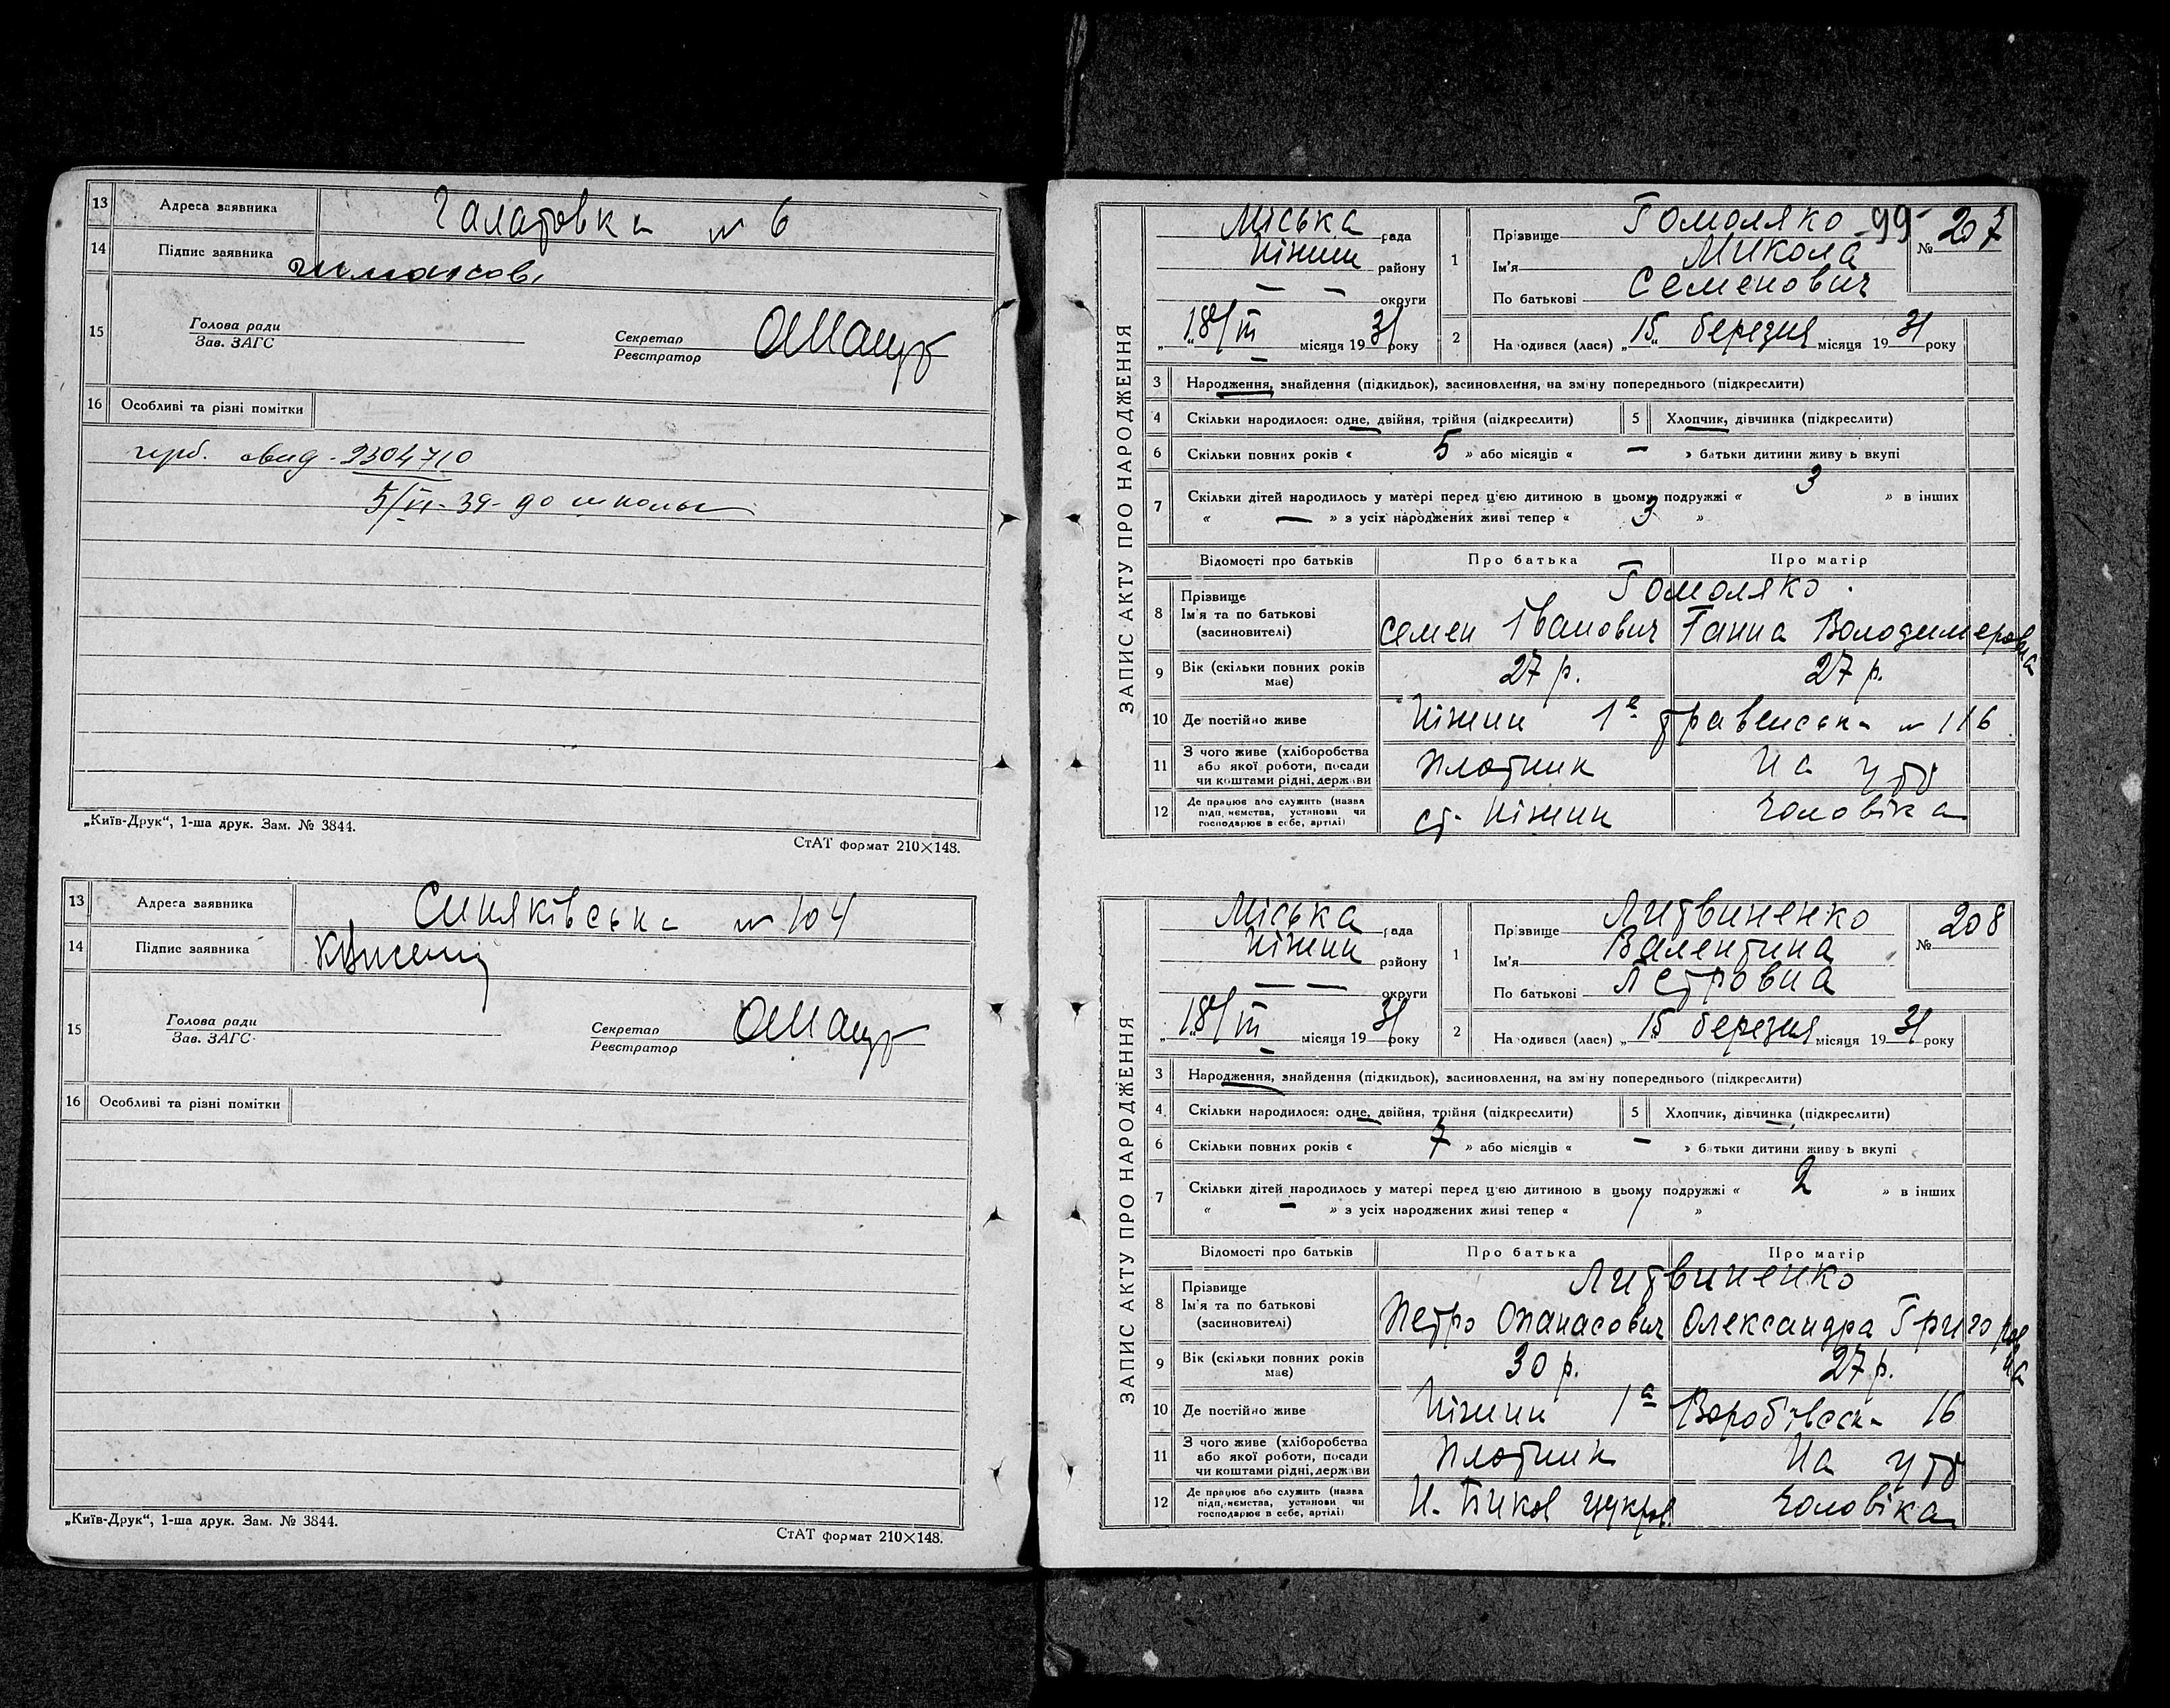 13 Адреса заявника Галатовка № 6
14 Підпис заявника
15 Голова ради
Зав. ЗАГС
Секретар
Реєстратор
16 Особливі та різні помітки
герб. свид. 2304710
5/VI-39- до школы
„Київ-Друк“, 1-ша друк. Зам. № 3844.
СтАТ формат 210×148.
13 Адреса заявника Синяківська № 104
14 Підпис заявника
15 Голова ради
Зав. ЗАГС
Секретар
Реєстратор
16 Особливі та різні помітки
„Київ-Друк“, 1-ша друк. Зам. № 3844.
СтАТ формат 210×148.
ЗАПИС АКТУ ПРО НАРОДЖЕННЯ
Міська рада
Ніжин району
— — округи
„18/III місяця 1931 року
1 Прізвище Гомоляко
Ім'я Микола
По батькові Семенович
-99-
№ 207
2 Народився (лася) „15„ березня місяця 1931 року
3 Народження, знайдення (підкидьок), засиновлення, на зміну попереднього (підкреслити)
4 Скільки народилося: одне, двійня, трійня (підкреслити) 5 Хлопчик, дівчинка (підкреслити)
6 Скільки повних років « 5 » або місяців « — » батьки дитини живуть вкупі
7 Скільки дітей народилось у матері перед цією дитиною в цьому подружжі « 3 » в інших
« — » з усіх народжених живі тепер « 3 »
Відомості про батьків Про батька Про матір
8 Прізвище Гомоляко
Ім'я та по батькові Семен Іванович Ганна Володимеровна
(засиновителі)
9 Вік (скільки повних років має) 27 р. 27 р.
10 Де постійно живе Ніжин 1е травенська № 116
11 З чого живе (хліборобства або якої роботи, посади чи коштами рідні, держави Плотник На утр
12 Де працює або служить (назва підприємства, установи чи господарює в себе, артілі) ст. Ніжин чоловіка
ЗАПИС АКТУ ПРО НАРОДЖЕННЯ
Міська рада
Ніжин району
— — округи
„18/III місяця 1931 року
1 Прізвище Литвиненко
Ім'я Валентина
По батькові Петровна
№ 208
2 Народився (лася) „15 березня місяця 1931 року
3 Народження, знайдення (підкидьок), засиновлення, на зміну попереднього (підкреслити)
4 Скільки народилося: одне, двійня, трійня (підкреслити) 5 Хлопчик, дівчинка (підкреслити)
6 Скільки повних років « 7 » або місяців « — » батьки дитини живуть вкупі
7 Скільки дітей народилось у матері перед цією дитиною в цьому подружжі « 2 » в інших
« — » з усіх народжених живі тепер « 1 »
Відомості про батьків Про батька Про матір
8 Прізвище Литвиненко
Ім'я та по батькові Петро Опанасович Олександра Григоровна
(засиновителі)
9 Вік (скільки повних років має) 30 р. 27 р.
10 Де постійно живе Ніжин 1а Вороб'ївськ 16
11 З чого живе (хліборобства або якої роботи, посади чи коштами рідні, держави Плотник На утр
12 Де працює або служить (назва підприємства, установи чи господарює в себе, артілі) Н. Биков цукров. чоловіка